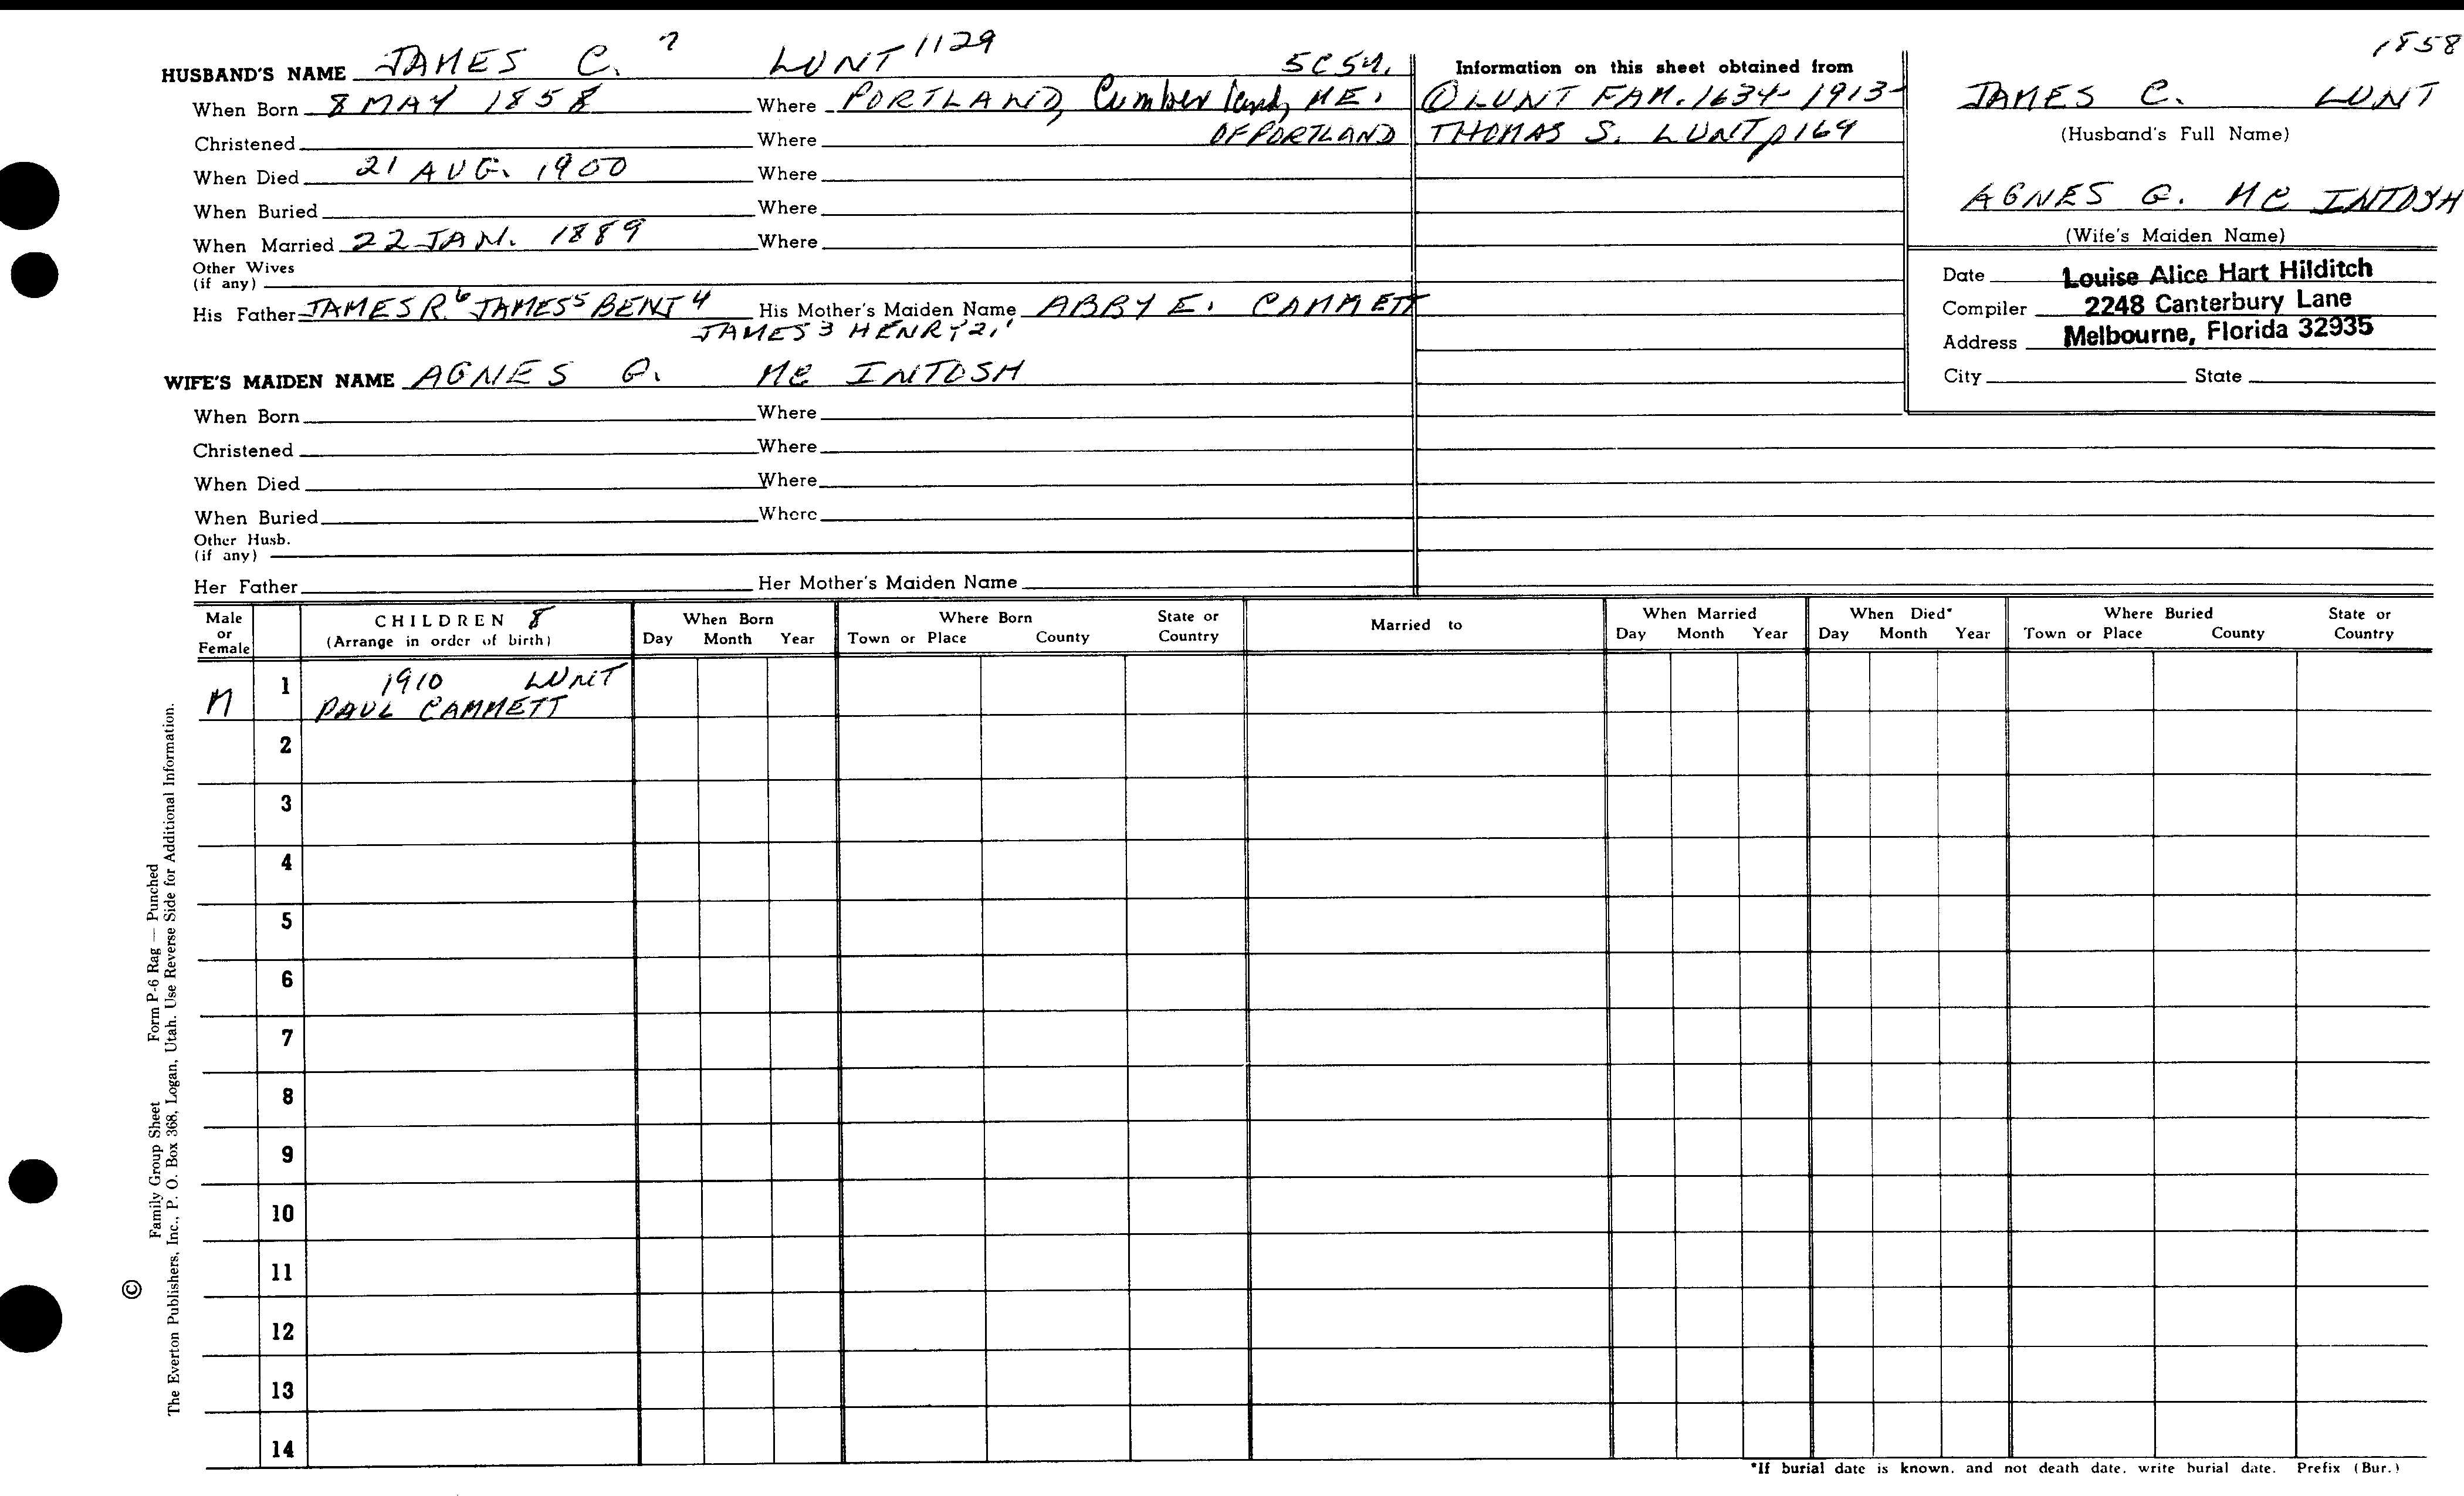 1858
HUSBAND'S NAME JAMES C. 7 LUNT 1129 5C5M.
When Born 8 MAY 1858 Where PORTLAND, Cumberland, ME.
Christened Where OF PORTLAND
When Died 21 AUG. 1900 Where
When Buried Where
When Married 22 JAN. 1889 Where
Other Wives
(if any)
His Father JAMES R. 6 JAMES 5 BENJ 4 His Mother's Maiden Name ABBY E. CAMMETT
JAMES 3 HENRY 2, 1
WIFE'S MAIDEN NAME AGNES G. Mc INTOSH
When Born Where
Christened Where
When Died Where
When Buried Where
Other Husb.
(if any)
Her Father Her Mother's Maiden Name
Information on this sheet obtained from
① LUNT FAM. 1634-1913-
THOMAS S. LUNT p 164
JAMES C. LUNT
(Husband's Full Name)
AGNES G. Mc INTOSH
(Wife's Maiden Name)
Date Louise Alice Hart Hilditch
Compiler 2248 Canterbury Lane
Address Melbourne, Florida 32935
City State
Male or Female CHILDREN 8 (Arrange in order of birth) When Born Day Month Year Where Born Town or Place County State or Country Married to When Married Day Month Year When Died* Day Month Year Where Buried Town or Place County State or Country
1910 LUNT
M 1 PAUL CAMMETT
2
3
4
5
6
7
8
9
10
11
12
13
14
*If burial date is known, and not death date, write burial date. Prefix (Bur.)
Family Group Sheet Form P-6 Rag — Punched
© The Everton Publishers, Inc., P. O. Box 368, Logan, Utah. Use Reverse Side for Additional Information.